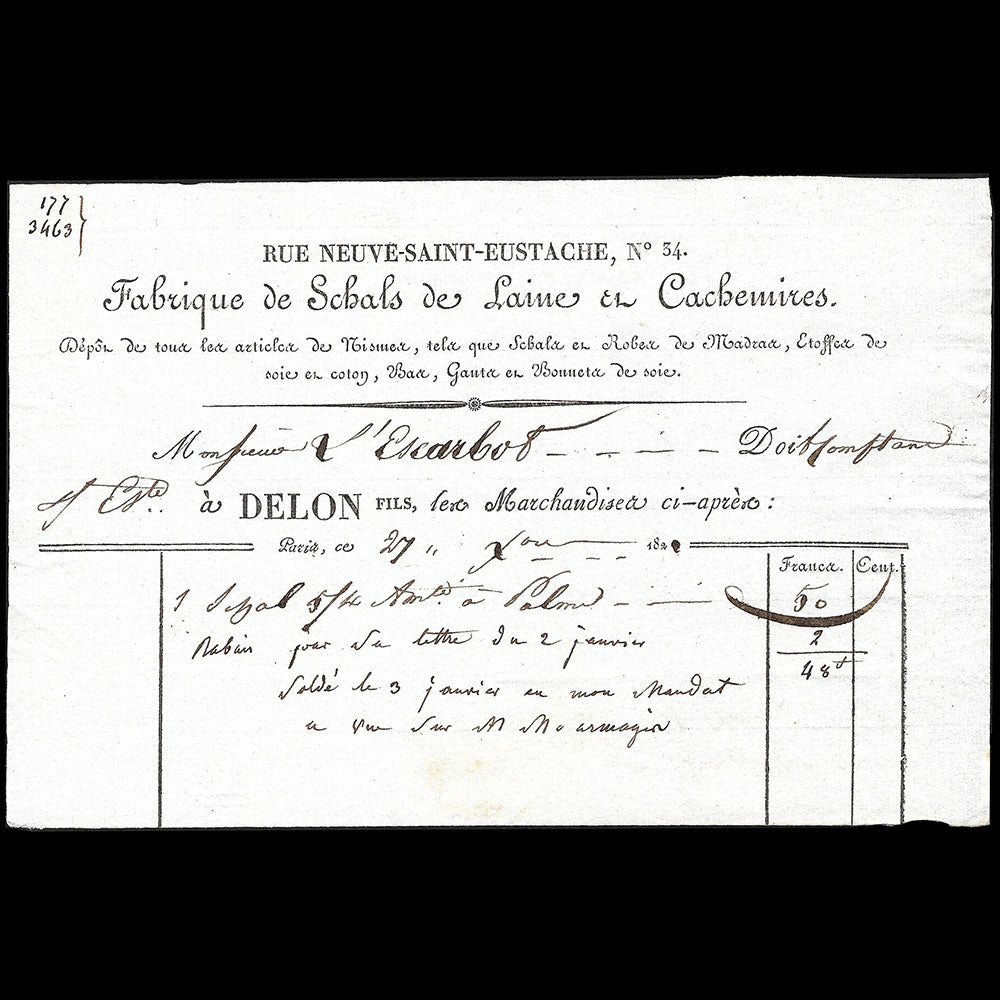 177
3463
RUE NEUVE-SAINT-EUSTACHE, N° 34.
Fabrique de Schals de Laine et Cachemires.
Dépôt de tous les articles de Nismes, tels que Schals et Robes de Madras, Etoffes de
soie et coton, Bas, Gants et Bonnets de soie.
Monsieur L'Escarbot Doit comptant
à DELON FILS, les Marchandises ci-après:
Paris, ce 27 182
Francs. Cent.
1 Schal 5/4 à Palme 50
Rabais pour sa lettre du 2 janvier 2
48 f
Soldé le 3 janvier en mon Mandat
a vue sur M